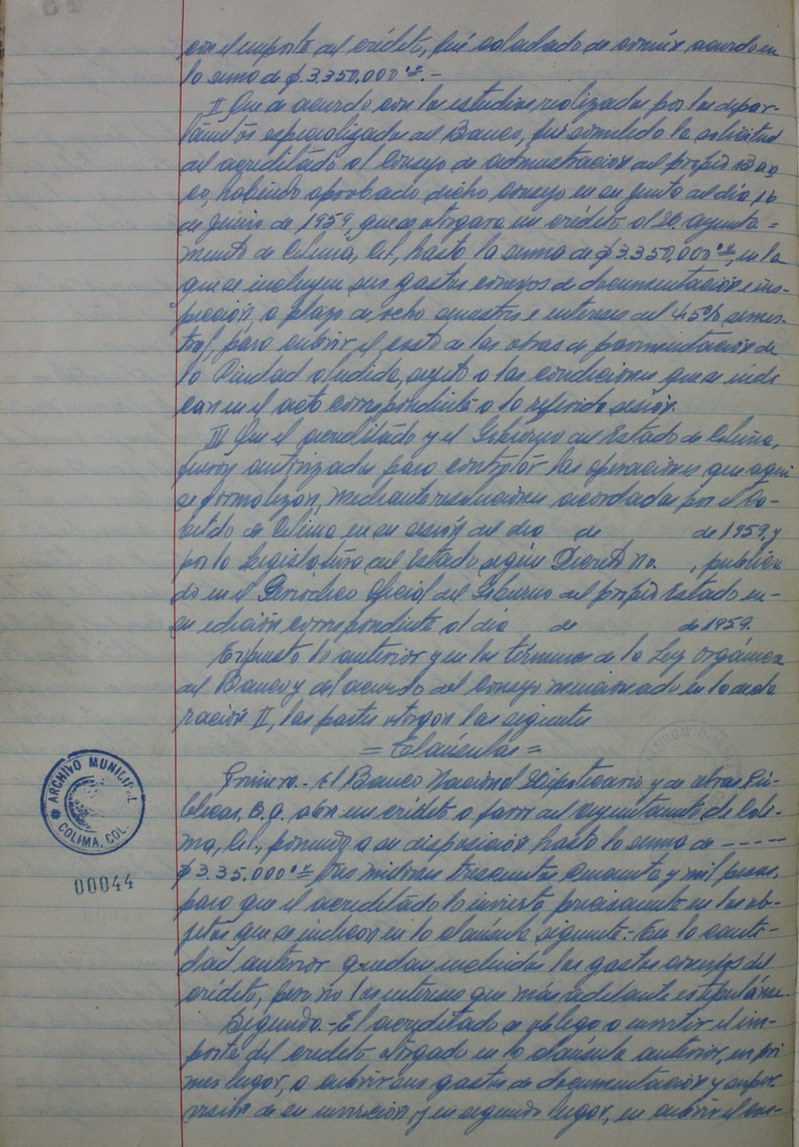 con el importe del crédito, fué calculado de común acuerdo en
la suma de $3.350,000.°°.-
II Que de acuerdo con los estudios realizados por los depar-
tamentos especializados del Banco, fué sometida la solicitud
del acreditado al Consejo de administración del propio Ban
co, habiendo aprobado dicho consejo en su junta del día 16
de Junio de 1959, que se otorgara un crédito al H. ayunta=
miento de Colima, Col., hasta la suma de $3.350,000.°°, en la
que se incluyen sus gastos conexos de documentación e ins-
pección, a plazo de ocho semestres e intereses del 4.5% semes-
tral, para cubrir el costo de las obras de pavimentación de
la Ciudad aludida, sujeto a las condiciones que se indi
can en el acta correspondiente a la referida sesión.
III Que el acreditado y el Gobierno del Estado de Colima,
fueron autorizados para contratar las operaciones que aqui
se formalizan, mediante resoluciones acordadas por el Ca-
bildo de Colima en su sesión del día de de 1959, y
por la Legislatura del Estado según Decreto no. , publica
do en el Periódico Oficial del Gobierno del propio Estado en-
su edición correspondiente al día de de 1959.
Expuesto lo anterior y en los términos de la Ley orgánica
del Banco y del acuerdo del Consejo mencionado en la decla
ración II, las partes otorgan las siguientes
= Cláusulas =
Primera.- El Banco Nacional Hipotecario y de obras Pú-
blicas, S.A. abre un crédito a favor del ayuntamiento de Coli-
ma, Col., poniendo a su disposición hasta la suma de -----
$3.35.000.°° tres millones trescientos cincuenta y mil pesos,
para que el acreditado lo invierta precisamente en los ob-
jetos que se indican en la cláusula siguiente.- En la canti-
dad anterior quedan incluidos los gastos conexos del
crédito, pero no los intereses que más adelante se estipulan.-
Segunda.- El acreditado se obliga a invertir el im-
porte del crédito otorgado en la cláusula anterior, en pri
mer lugar, a cubrir sus gastos de documentación y super
visión de su inversión, y en segundo lugar, en cubrir el cos-
ARCHIVO MUNICIPAL
COLIMA, COL.
00044